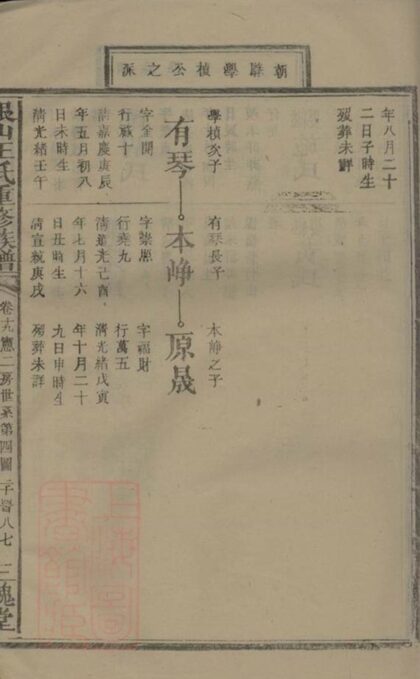 朝學楨公之派
年八月二十
二日子時生
歿葬未詳
學楨次子 有琴長子 本崢之子
有琴 本崢 原晟
字金開 字崇應 字福財
行十 行堯九 行萬五
清嘉慶庚辰 清道光己酉 清光緒戊寅
年五月初八 年七月十六 年十月二十
日未時生 日丑時生 九日申時生
清光緒壬午 清宣統庚戌 歿葬未詳
山王氏重修族譜 卷十九應二房世系第四圖 子晉八七 二 槐堂